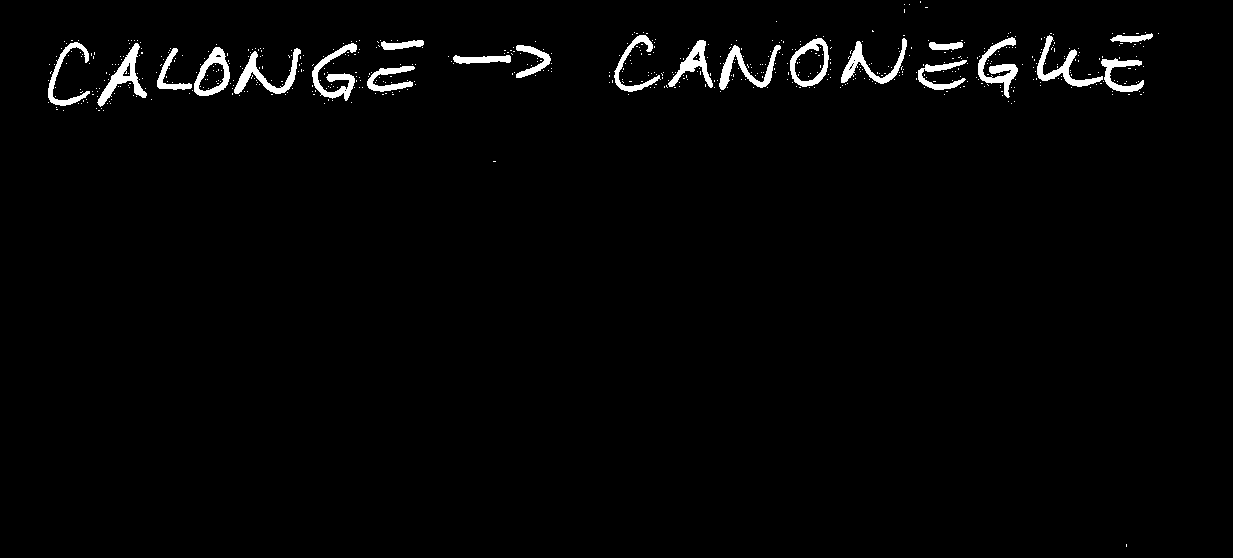 CALONGE → CANONEGUE